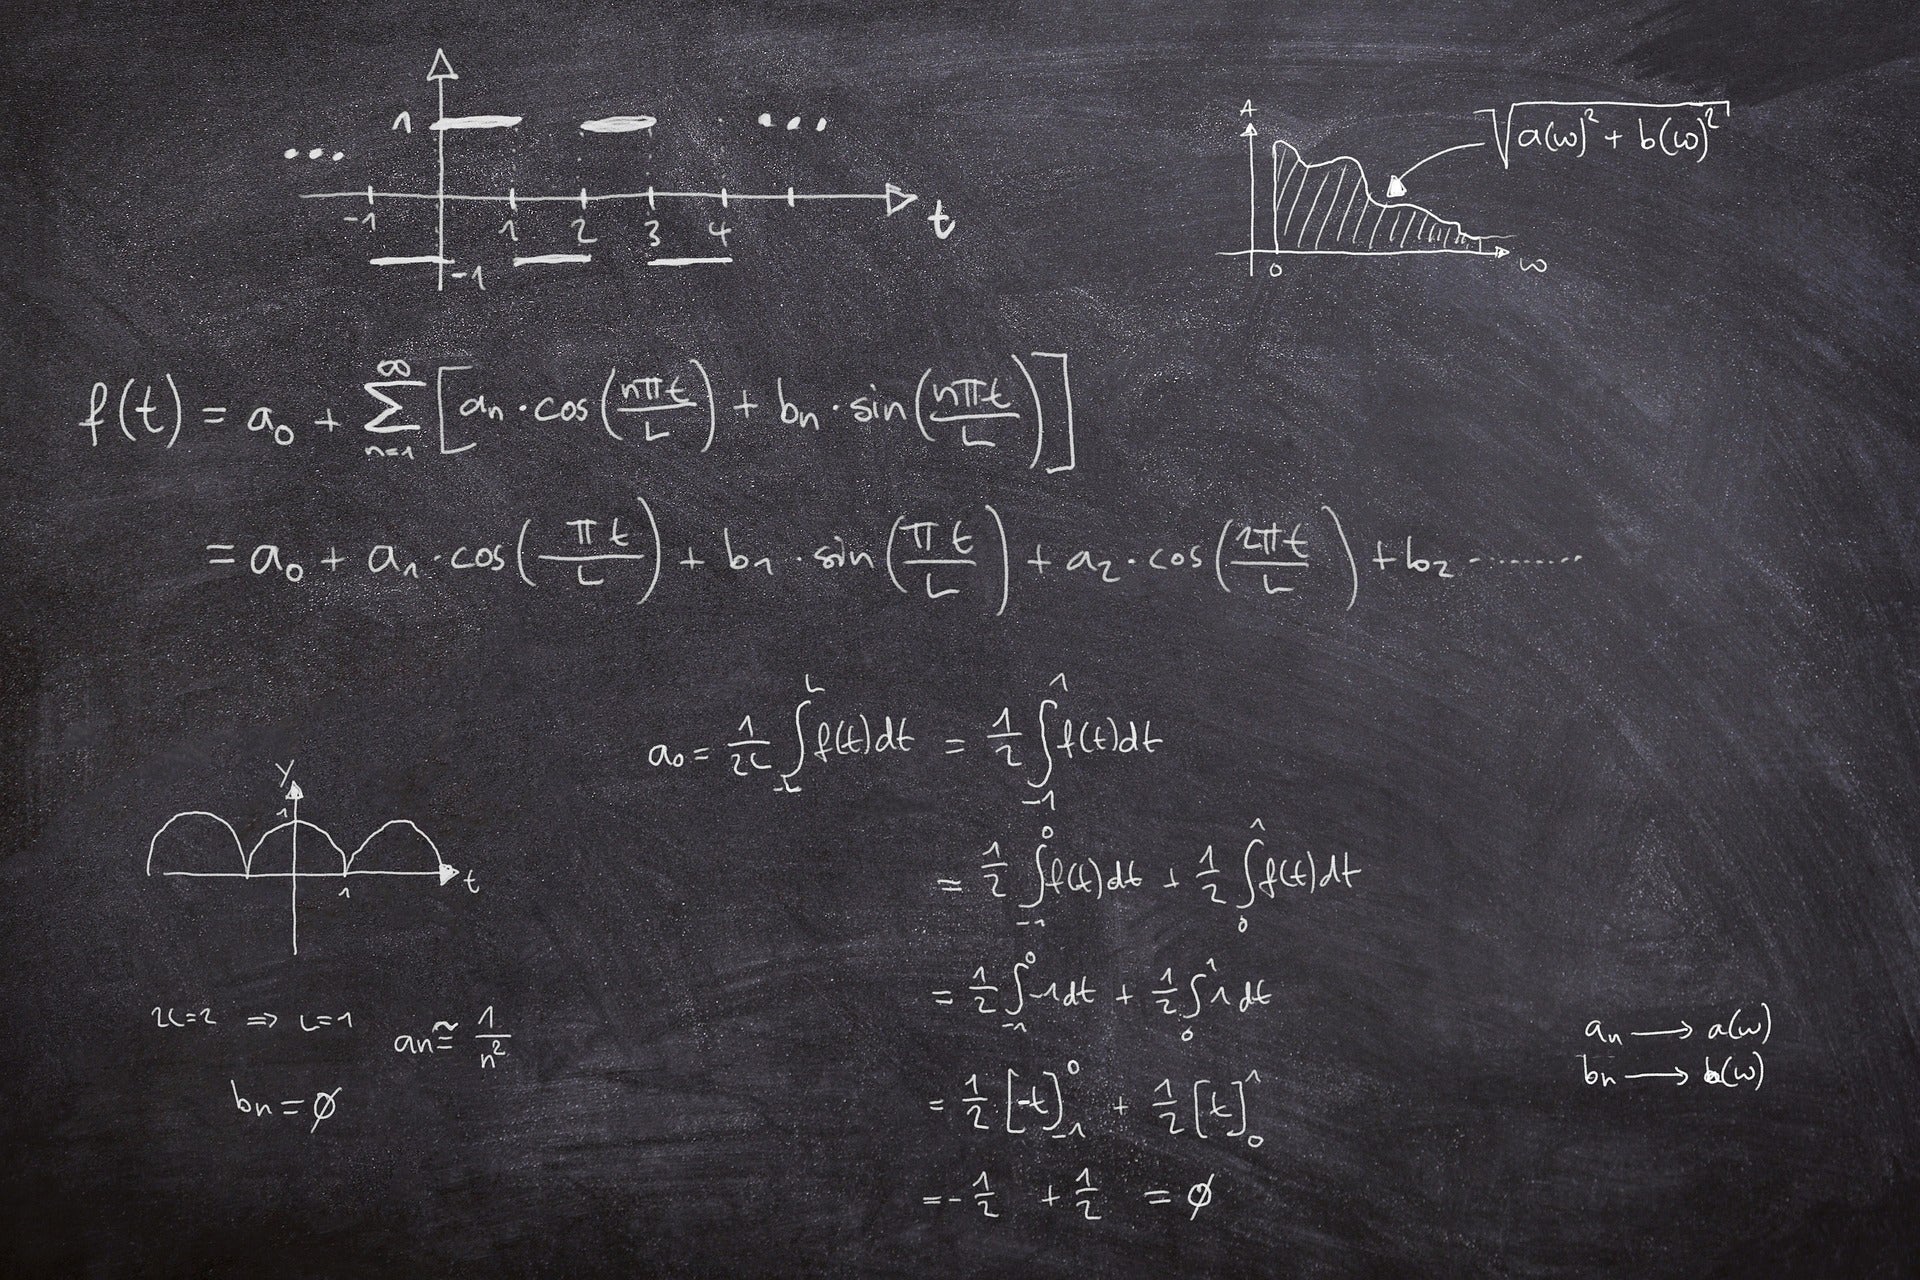 1
... ...
-1 1 2 3 4 t
-1
A
√(a(ω)² + b(ω)²)
0 ω
f(t) = a₀ + ∑_{n=1}^{∞} [aₙ · cos(nπt/L) + bₙ · sin(nπt/L)]
= a₀ + a₁ · cos(πt/L) + b₁ · sin(πt/L) + a₂ · cos(2πt/L) + b₂ ..........
a₀ = 1/2L ∫_{-L}^{L} f(t)dt = 1/2 ∫_{-1}^{1} f(t)dt
= 1/2 ∫_{-1}^{0} f(t)dt + 1/2 ∫_{0}^{1} f(t)dt
= 1/2 ∫_{-1}^{0} -1dt + 1/2 ∫_{0}^{1} 1dt
= 1/2 [-t]_{-1}^{0} + 1/2 [t]_{0}^{1}
= -1/2 + 1/2 = ∅
y
1
1 t
2L=2 ⇒ L=1
aₙ ≅ 1/n²
bₙ = ∅
aₙ → a(ω)
bₙ → b(ω)